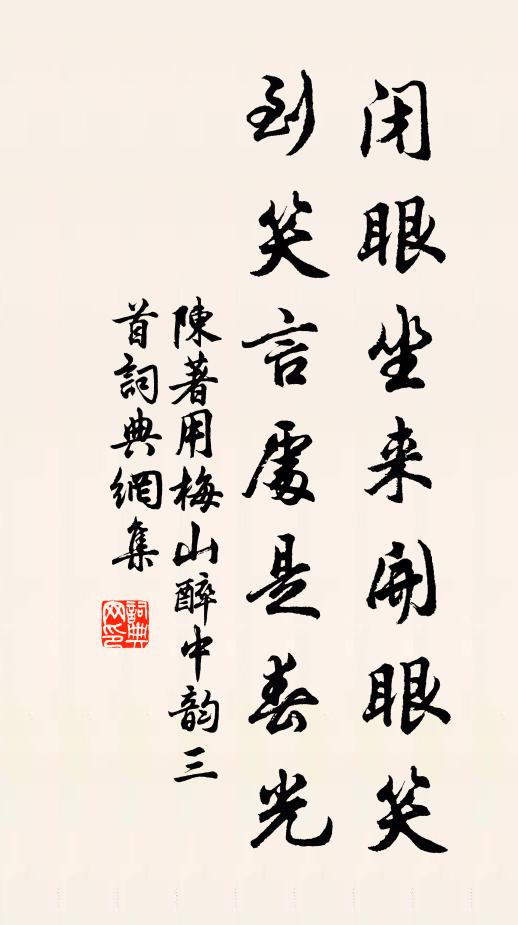 闭眼坐来开眼笑
到笑言处是春光
陳著用梅山醉中韵三
首詞典網集
詞典
网印